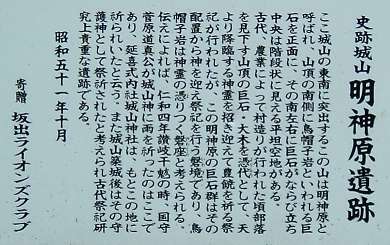 史跡城山 明神原遺跡
ここ城山の東南に突出するこの山は明神原と
呼ばれ、山頂の南側に烏帽子岩といわれる巨
石を正面に、その南左右に巨石がならび立ち
中央は階段状に見える平坦な地がある。
古代、農業によって村造りが行われた頃部落
を見下す山頂の巨石・大木を憑代として、天
より降臨する神霊を招き迎えて豊饒を祈る祭
祀が行われたが、この明神原の巨石群はその
配置から神を迎え祭祀を行う磐境であり、烏
帽子岩は神霊の憑りつく磐座と考えられる。
伝えによれば、仁和四年讃岐干魃の時、国守
菅原道真公が城山神に雨を祈ったのはここで
あり、延喜式内社城山神社は、もとこの地に
祈られいたと云う。また城山築城後はその守
護神として祭祈されたと考えられ古代祭祀研
究上貴重な遺跡である。
昭和五十一年十月
寄贈 坂出ライオンズクラブ